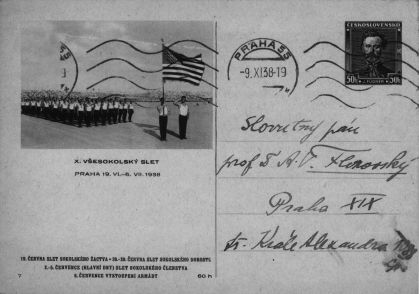 PRAHA 55
-9.XI38-19
ČESKOSLOVENSKO
50h
X. VŠESOKOLSKÝ SLET
PRAHA 19. VI.-6. VII. 1938
Slovutný pán
prof Dr A. V. Florovsky
Praha XIX
tř. Krále Alexandra
19. ČERVNA SLET SOKOLSKÉHO ŽACTVA • 26.-29. ČERVNA SLET SOKOLSKÉHO DOROSTU
3.-6. ČERVENCE (HLAVNÍ DNY) SLET SOKOLSKÉHO ČLENSTVA
6. ČERVENCE VYSTOUPENÍ ARMÁDY
7
60 h